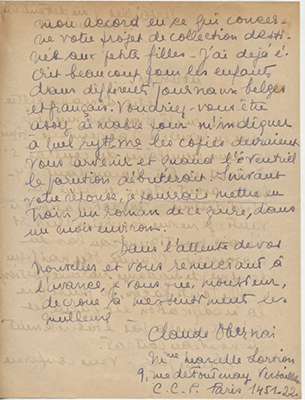 mon accord en ce qui concer-
ne votre projet de collection desti-
née aux petites filles - J'ai déjà é-
crit beaucoup pour les enfants
dans différents journaux belges
et français. Voudriez-vous être
assez aimable pour m'indiquer
à quel rythme les copies devraient
vous arriver et quand l'éventuel-
le parution débuterait. Suivant
votre réponse, je pourrais mettre en
train un roman de ce genre, dans
un mois environ.
Dans l'attente de vos
nouvelles et vous remerciant à
l'avance, je vous prie, monsieur,
de croire à mes sentiments les
meilleurs -
Claude Obernai
Mme Marcelle
9, rue de Fontenay Versailles
C.C.P. Paris 1451-22